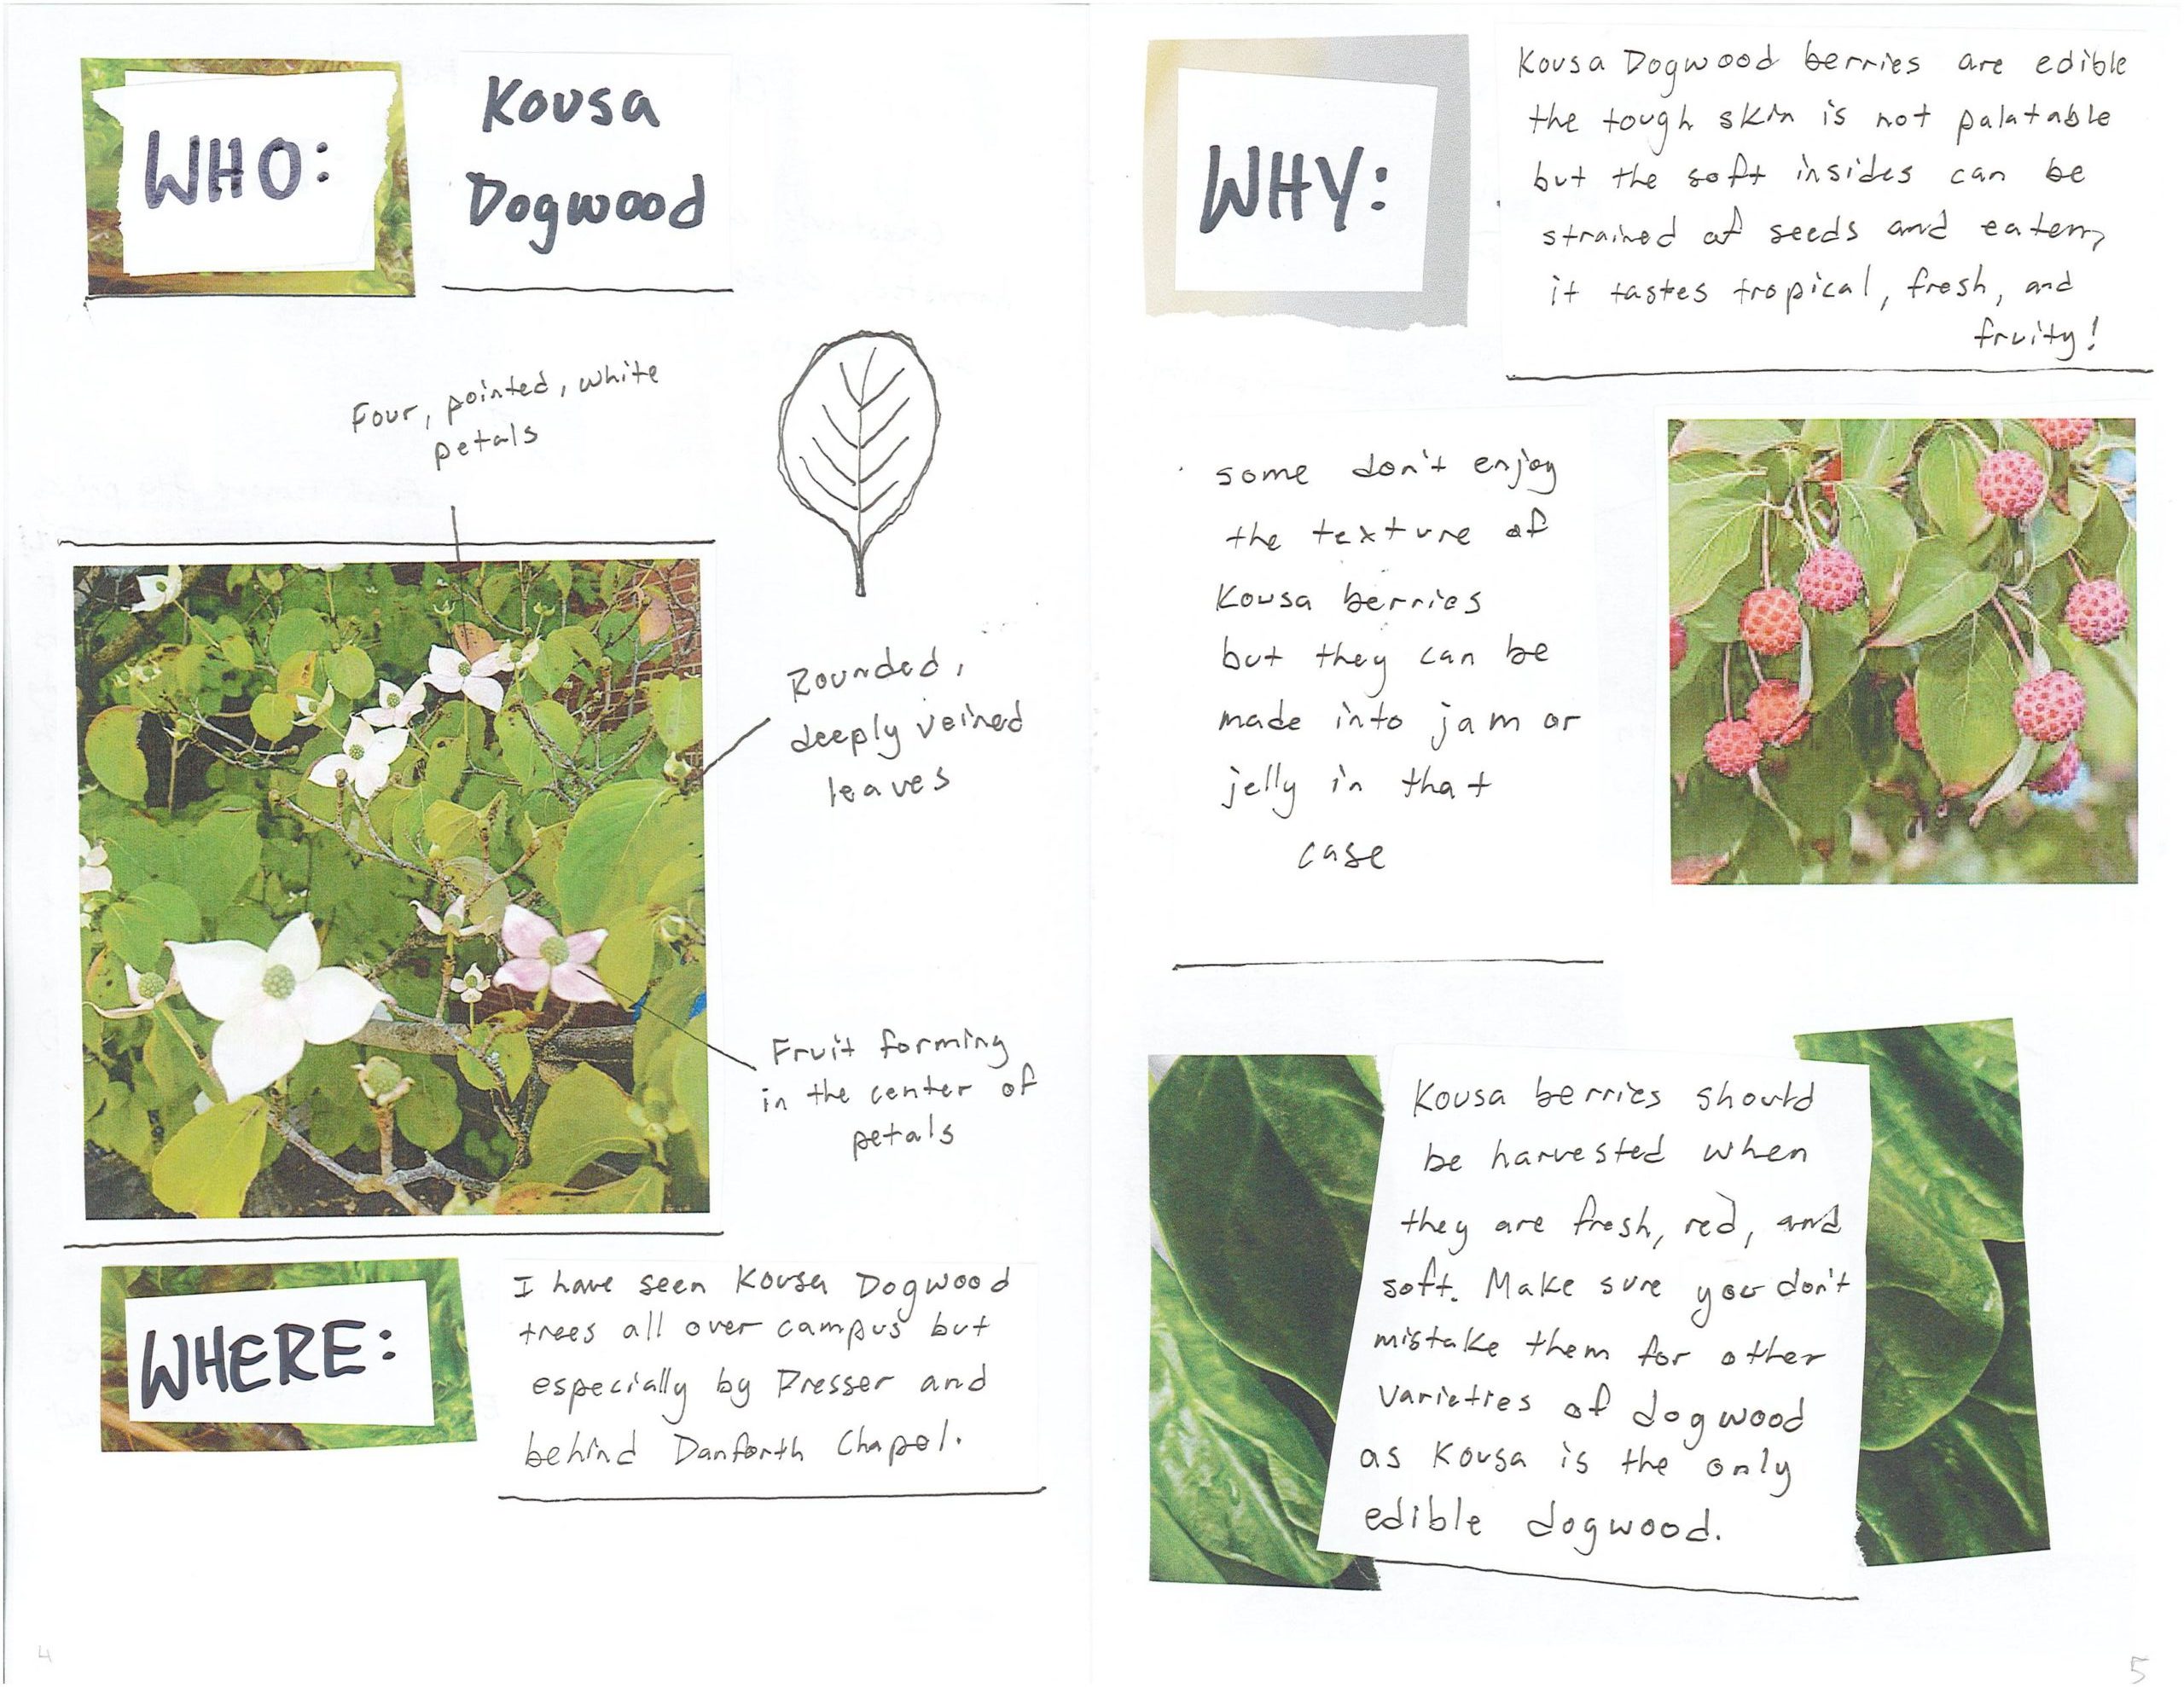 WHO:
Kousa
Dogwood
Four, pointed, white
petals
Rounded,
deeply veined
leaves
Fruit forming
in the center of
petals
WHERE:
I have seen Kousa Dogwood
trees all over campus but
especially by Presser and
behind Danforth Chapel.
4
WHY:
Kousa Dogwood berries are edible
the tough skin is not palatable
but the soft insides can be
strained of seeds and eaten,
it tastes tropical, fresh, and
fruity!
some don't enjoy
the texture of
Kousa berries
but they can be
made into jam or
jelly in that
case
Kousa berries should
be harvested when
they are fresh, red, and
soft. Make sure you don't
mistake them for other
varieties of dogwood
as Kousa is the only
edible dogwood.
5